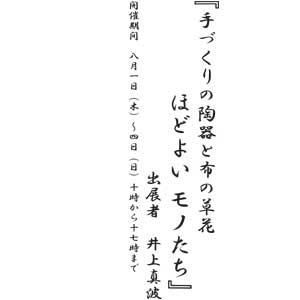 『手づくりの陶器と布の草花
ほどよいモノたち』
出展者　井上真波
開催期間　八月一日（木）～四日（日）十時から十七時まで